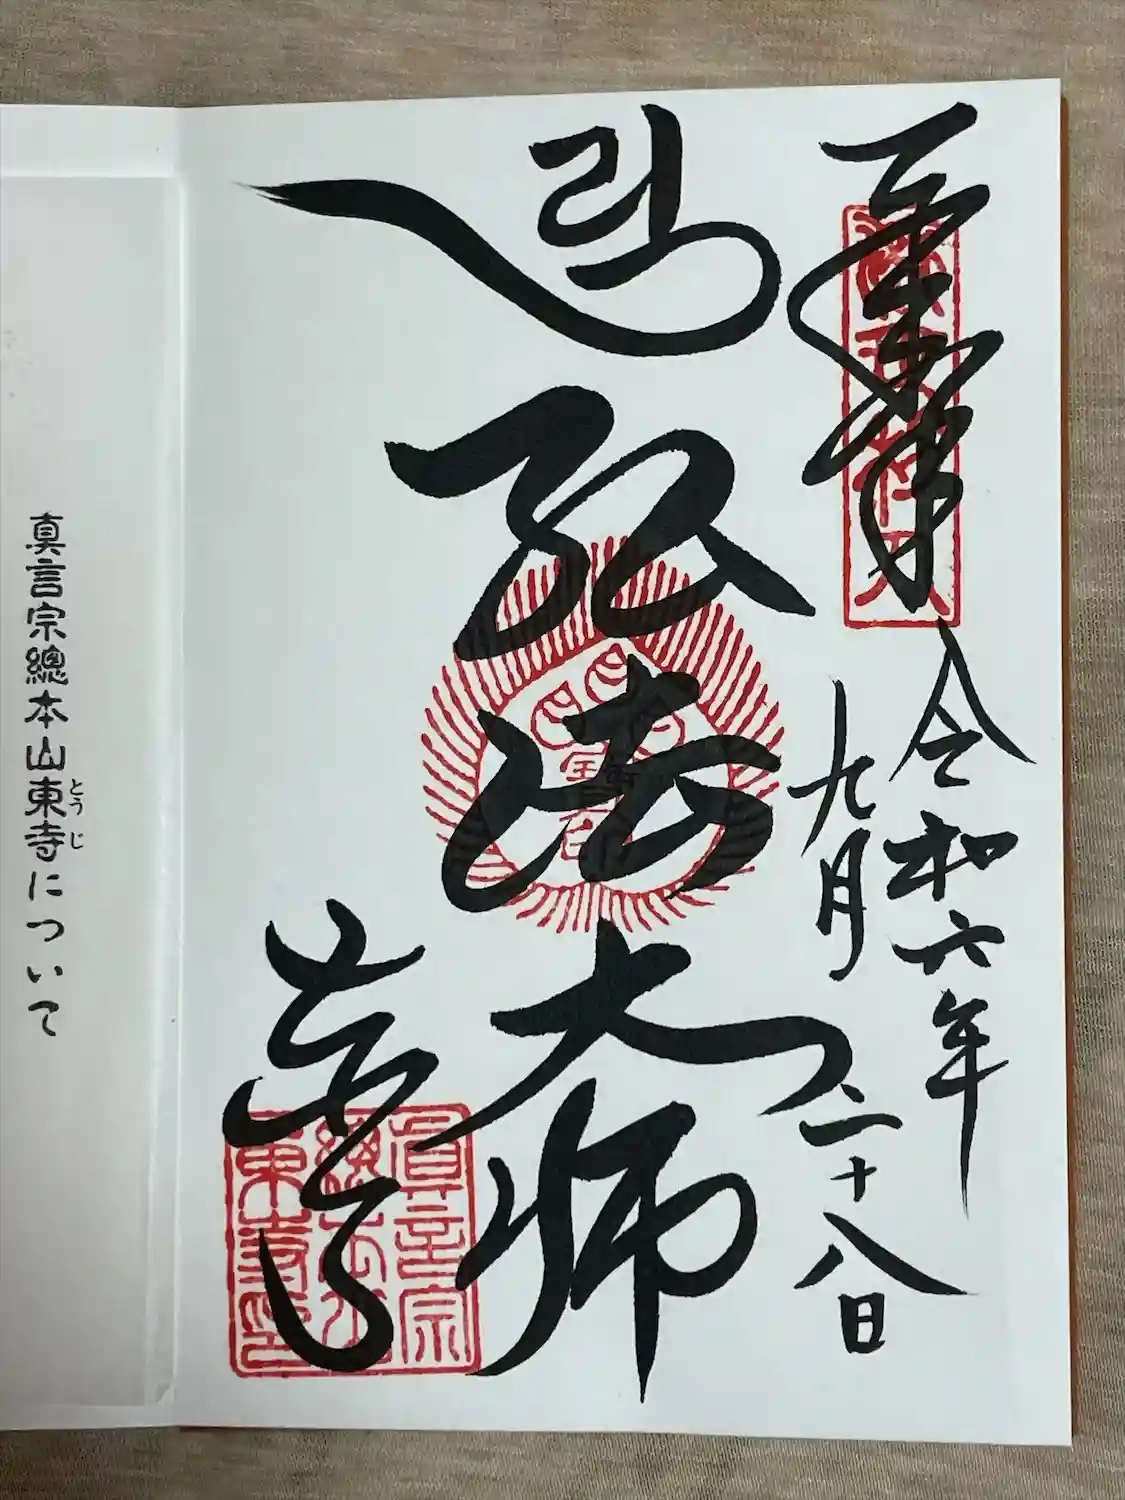 奉拝
令和六年
九月二十八日
弘法大師
東寺
真言宗
總本山
東寺印
真言宗總本山東寺について
とうじ